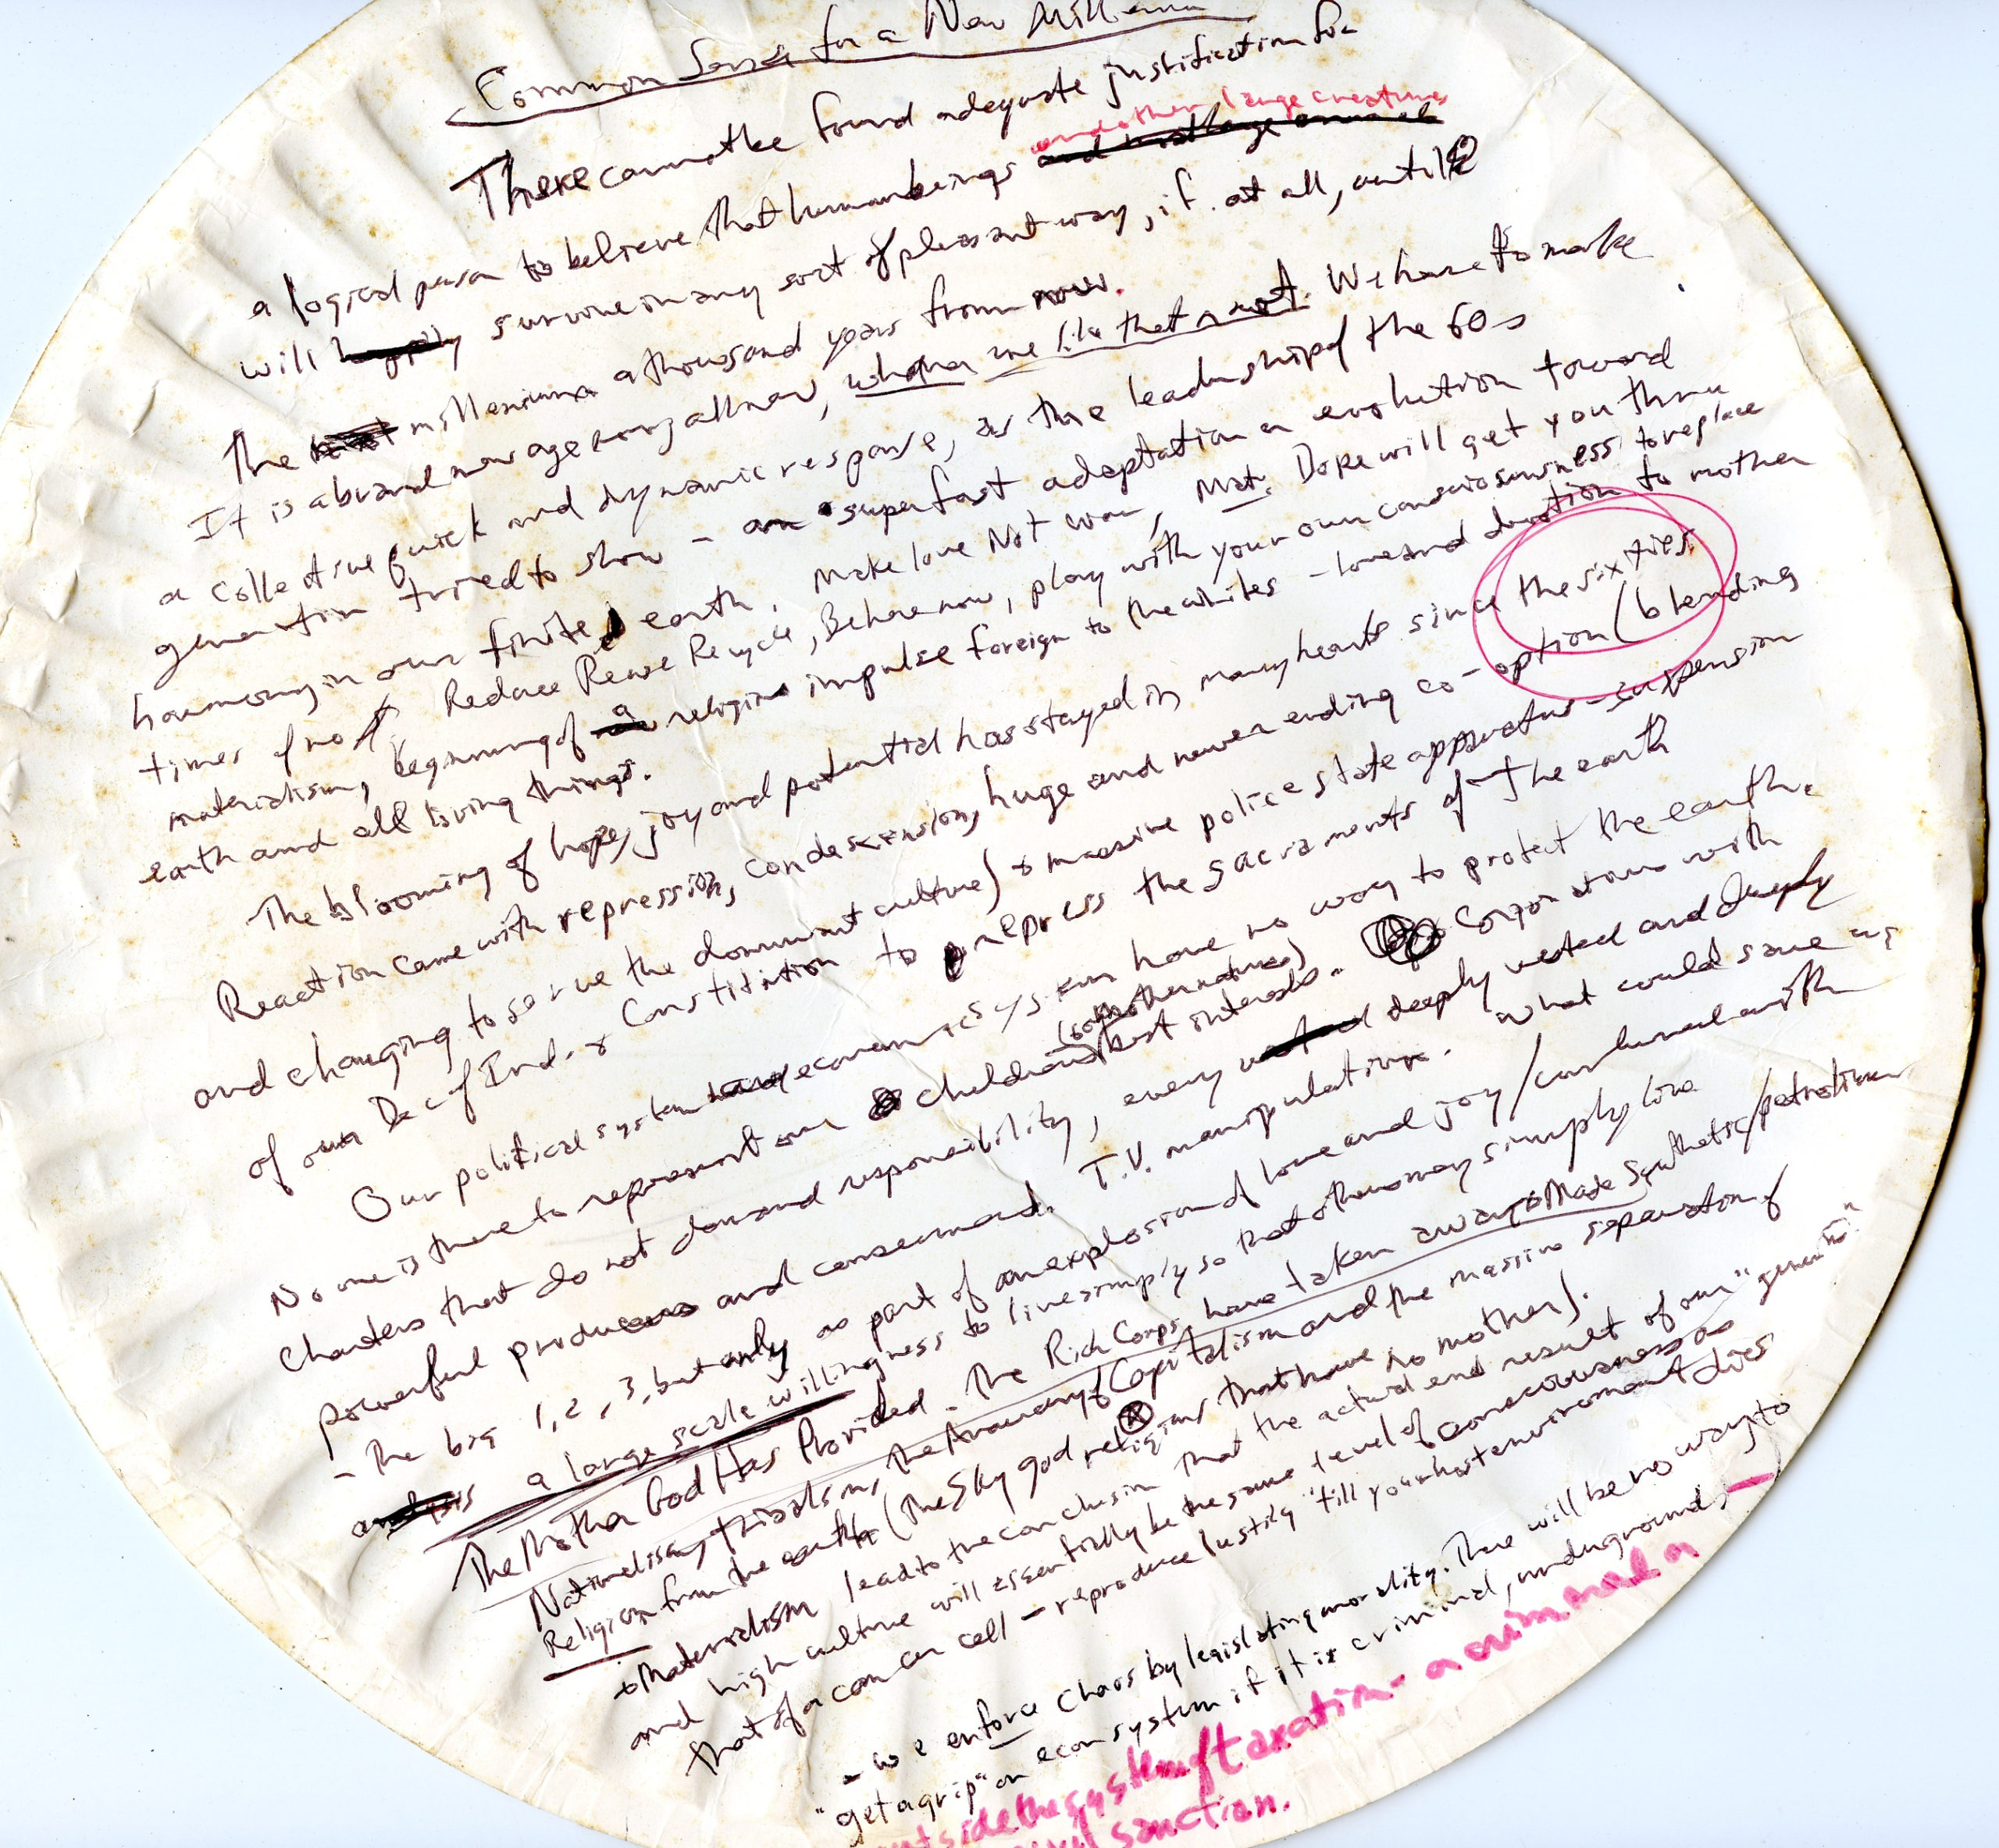 Common Sense for a New Millenia
There cannot be found adequate justification for
and other large creatures
a logical person to believe that human beings
will survive in any sort of pleasant way, if at all, until
the millenium a thousand years from now.
It is a brand new age every all new, like that or not. We have to make
a collective quick and dynamic response, as the leadership of the 60s
generation tried to show - superfast adaptation evolution toward
harmony in our finite earth. Make love Not war, Dope will get you thru
times of no Reduce Reuse Recycle, Be here now, play with your own consciousness to replace
materialism, beginning of a religious impulse foreign to the whites - love and devotion to mother
earth and all living things.
The blooming of hope, joy and potential has stayed in many hearts since the sixties.
Reaction came with repression, condescension, huge and never ending co-option (blending
and changing to serve the dominant culture) & massive police state apparatus - suspension
of our Dec of Ind. & Constitution to repress the sacraments of the earth
Our political system economic system have no way to protect the earth.
(or mother nature's)
No one is there to represent our children's best interests. Corporations with
charters that do not demand responsibility, every deeply vested and deeply
powerful producers and consumers. T.V. manipulation. What could save us
- The big 1, 2, 3, but only as part of an explosion of love and joy / combined with
a large scale willingness to live simply so that others may simply live
The Mother God Has Provided. The Rich Corps. have taken away & Made Synthetic/petroleum
Nationalism, tribalism, the Anarchy of Capitalism and the massive separation of
Religion from the earth (The Sky god religions that have no mother).
& Materialism lead to the conclusion that the actual end result of our "genius"
and high culture will essentially be the same level of consciousness as
that of a cancer cell - reproduce lustily 'till your host environment dies
- we enforce chaos by legislating morality. There will be no way to
"get a grip" on econ system if it is criminal, underground, -
outside the system of taxation - a
sanction.